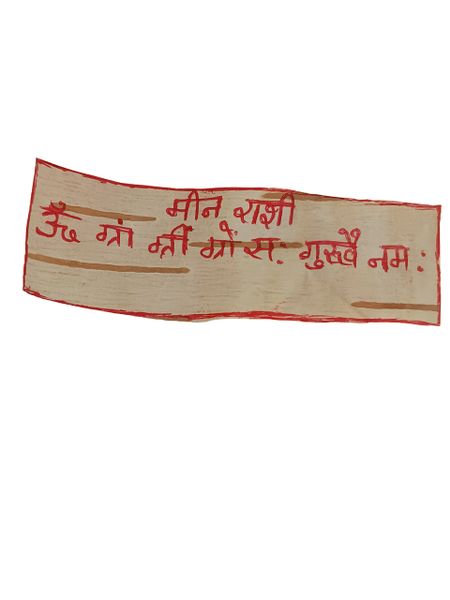 मीन राशी
ॐ ग्रां ग्रीं ग्रों सः गुरूवै नमः